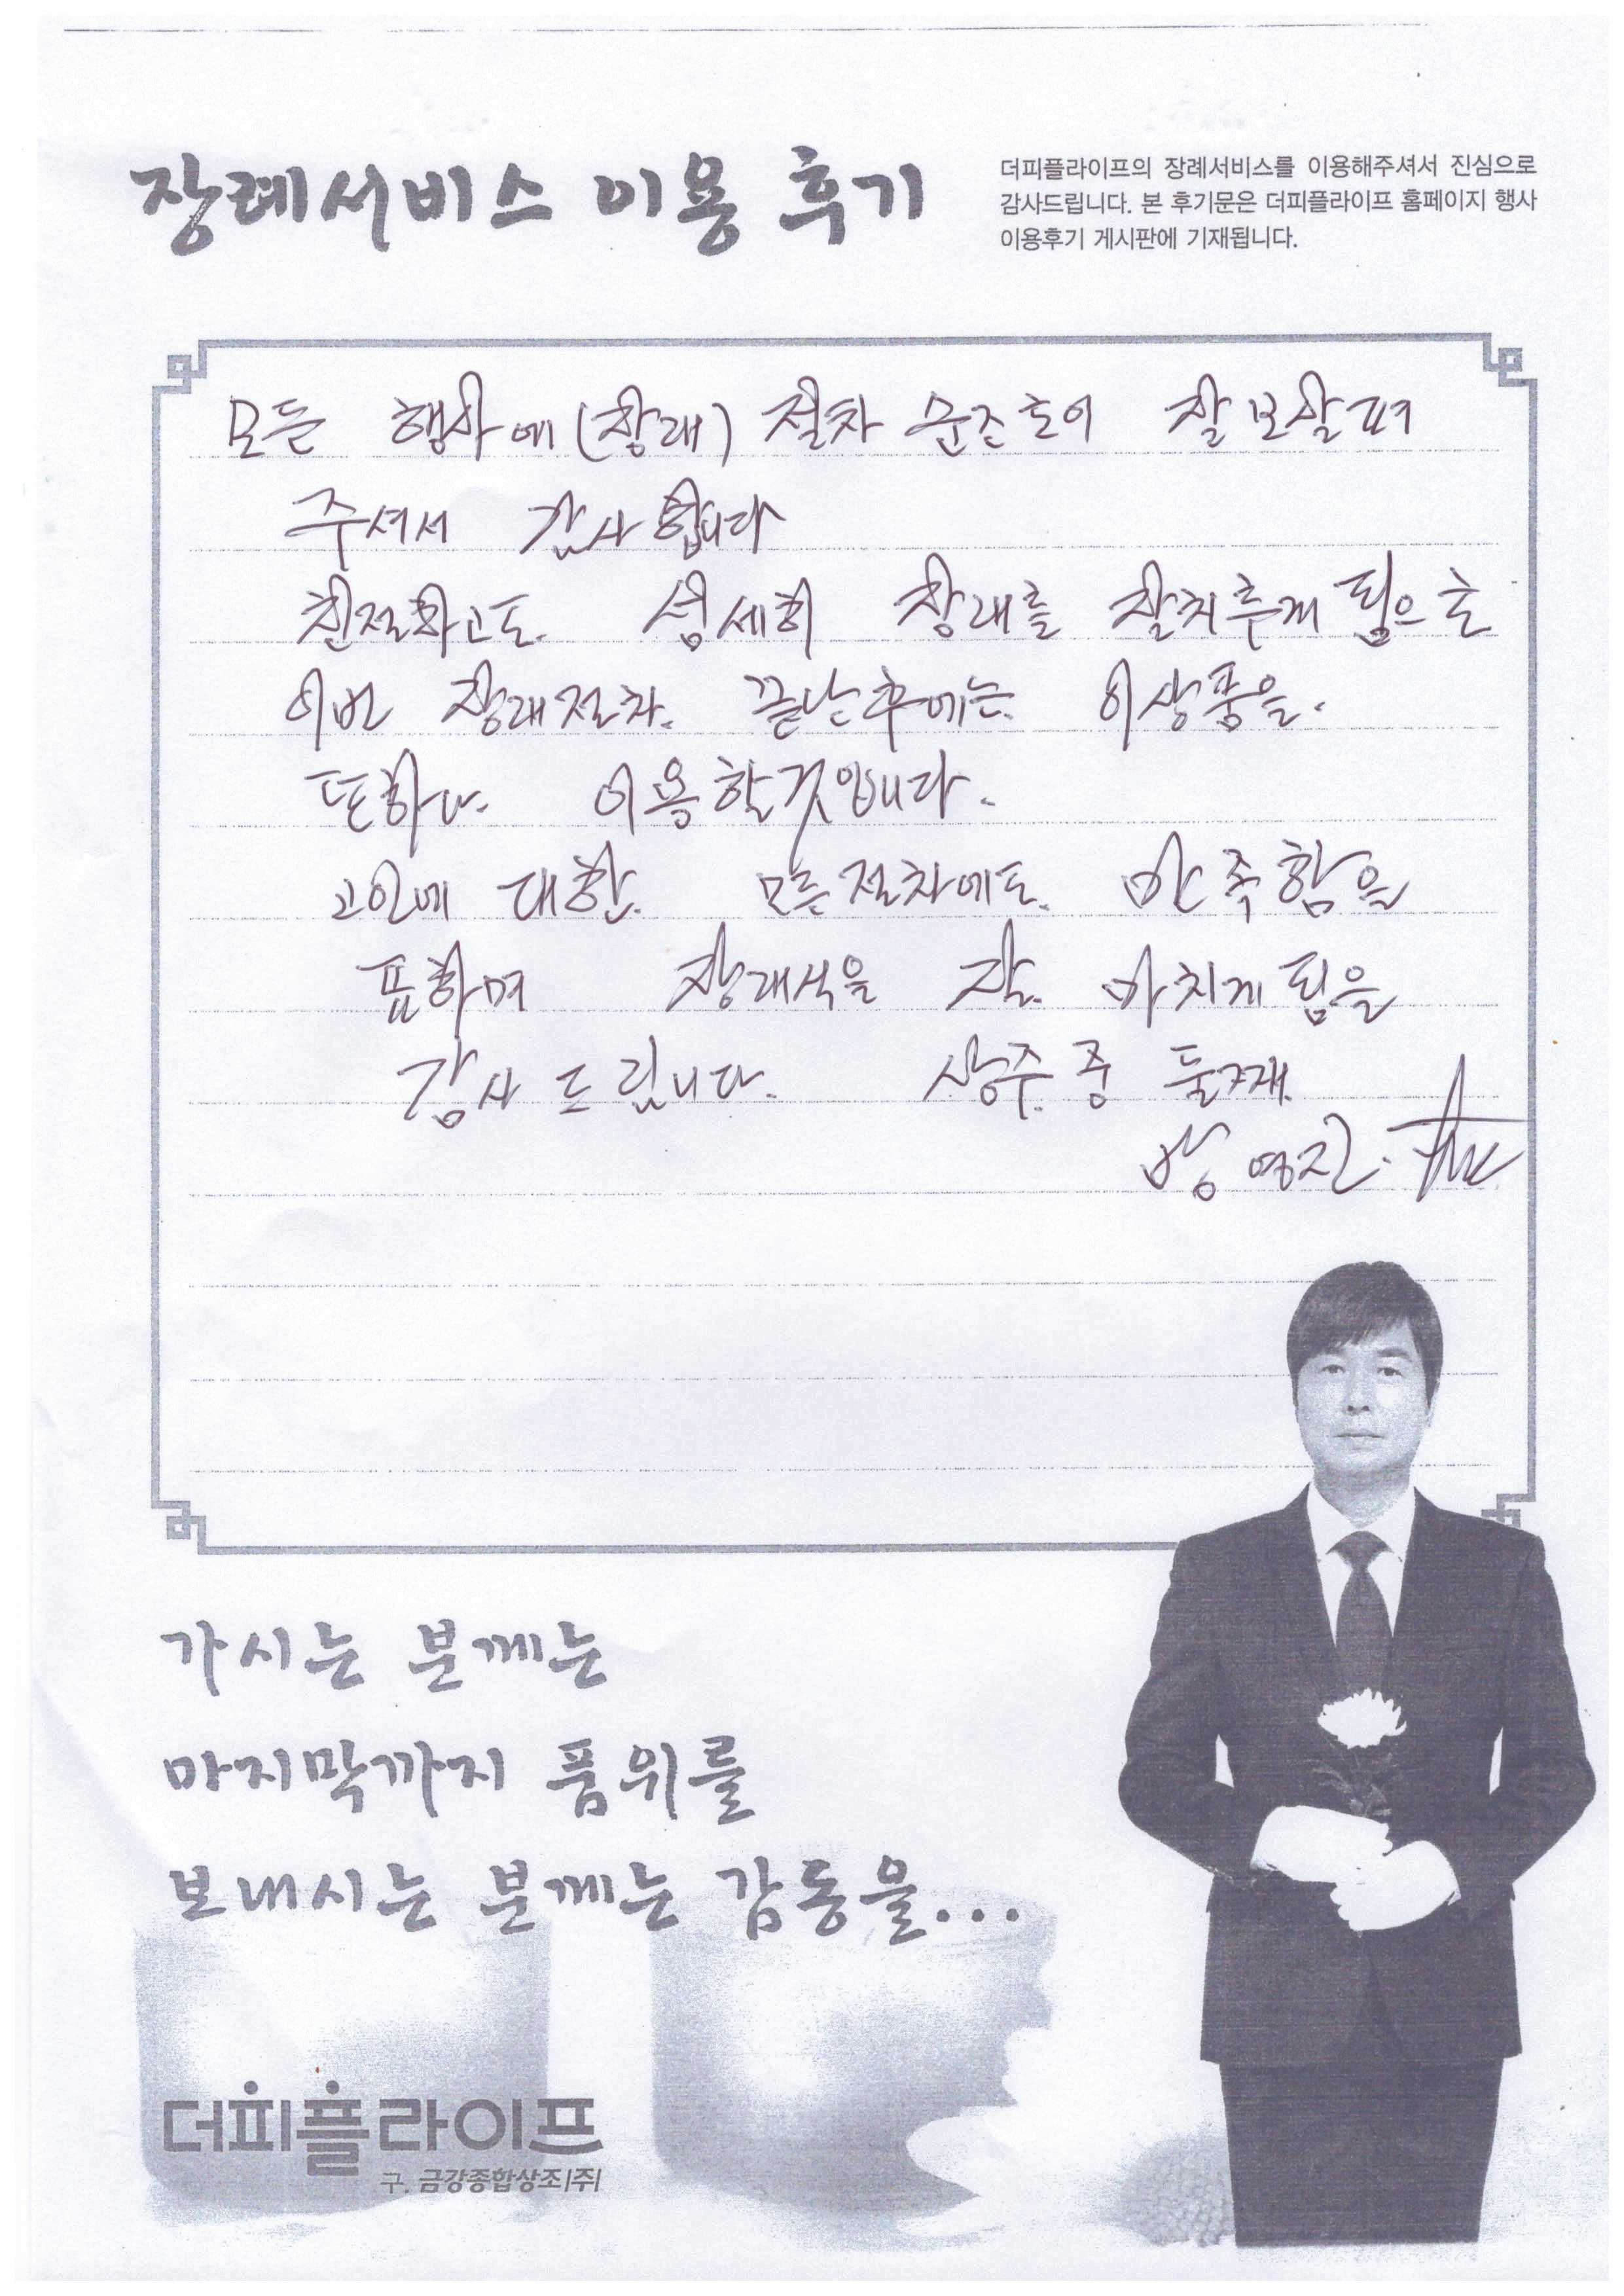 장례서비스 이용 후기
더피플라이프의 장례서비스를 이용해주셔서 진심으로
감사드립니다. 본 후기문은 더피플라이프 홈페이지 행사
이용후기 게시판에 기재됩니다.
모든 행사에 (장래) 절차 순조로이 잘 보살펴
주셔서 감사합니다
친절하고도. 섬세히 장래를 잘치루게 됨으로
이번 장래절차. 끝난후에는. 이상품을.
또하나. 이용할것입니다.
고인에 대한. 모든절차에도. 만족함을
표하며 장래식을 잘. 마치게 됨을
감사드립니다. 상주. 중 둘째.
방영진.
가시는 분께는
마지막까지 품위를
보내시는 분께는 감동을...
더피플라이프
구. 금강종합상조|주|